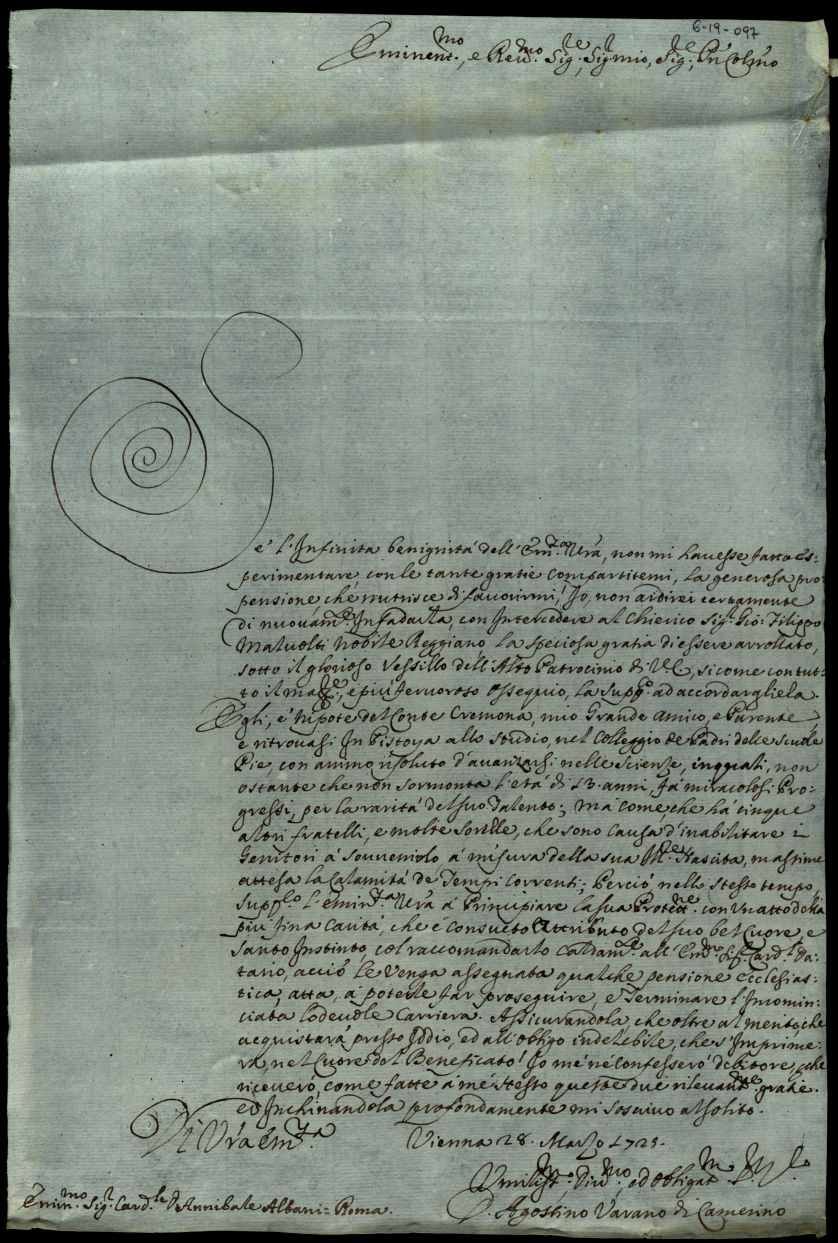 6-19-097
Eminent.mo, e Reu.mo Sig.re, Sig.r mio, Sig.re, Pñ Colmo
Se l'Infinita benignità dell'Em.za Vrã, non mi hauesse fatto es:
perimentare, con le tante gratie compartitemi, la generosa pro:
pensione che nutrisce di fauorirmi, Io, non ardirei certamente
di nuouam.te Infadarla, con Intercedere al Chierico Sig.r Gio: Filippo
Maluolti nobile Reggiano la speciosa gratia di essere arrollato,
sotto il glorioso Vessillo dell'Alto Patrocinio di V.E., sicome con tut:
to il mag.re, e più feruoroso ossequio, la supp.co ad accordargliela.
Egli, è Nipote del Conte Cremona, mio Grande Amico, e Parente,
e ritrouasi In Pistoya allo studio, nel Colleggio de Padri delle scuole
Pie, con animo risoluto d'auanzarsi nelle Scienze, inquali, non
ostante che non sormonta l'età di 13. anni, fà miracolosi Pro:
gressi, per la rarità del suo Talento; mà come, che hà cinque
altri fratelli, e molte sorelle, che sono causa d'inabilitare i
Genitori à souuenirlo à misura della sua Nascita, massime
attesa la Calamità de Tempi correnti; Perciò, nello stesso tempo,
supp.co l'Emin.za Vrã à Principiare la sua Protett.ne con un atto della
più fina carità, che è consueto Attributo del suo bel Cuore, e
santo Instinto, col raccomandarlo caldam.te all'Em.mo Sig.r Card.l Da:
tario, acciò le Venga assegnata qualche pensione Ecclesias:
tica, atta, à poterle far proseguire, e Terminare l'Incomin:
ciata lodeuole Carriera. Assicurandola, che oltre al merito, che
acquistarà presso Iddio, ed all'obligo indelebile, che s'Imprime:
rà, nel Cuore del Beneficato! Io me ne confesserò debitore, che
riceuerò, come fatte à me stesso queste due rileuanti gratie.
ed Inchinandola profondamente mi soscriuo al solito.
Di Vrã Em.za Vienna 28. Marzo 1725.
Vmiliss.mo, Diu.mo, ed obligat.mo
D. Agostino Varano di Camerino
Emin.mo Sig.r Card.le D. Annibale Albani = Roma.